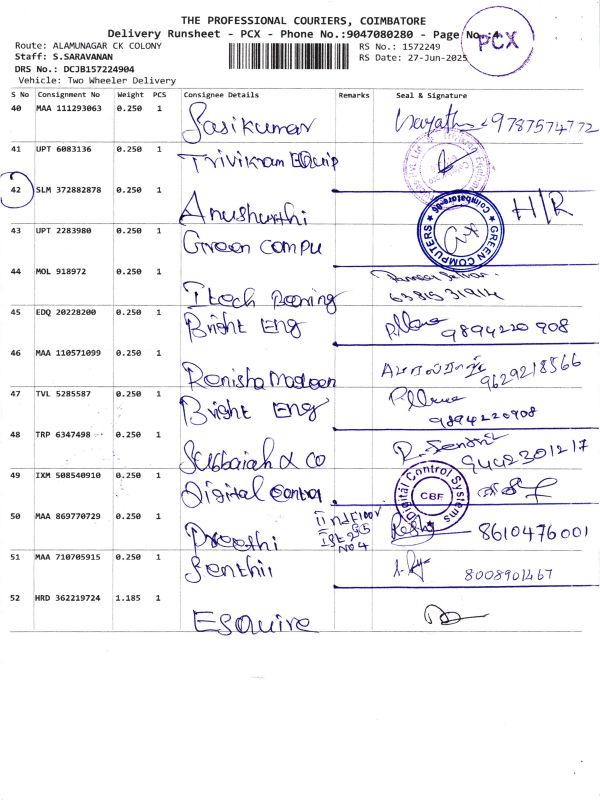 THE PROFESSIONAL COURIERS, COIMBATORE
Delivery Runsheet - PCX - Phone No.:9047080280 - Page No.:4
PCX
Route: ALAMUNAGAR CK COLONY
RS No.: 1572249
Staff: S.SARAVANAN
RS Date: 27-Jun-2025
DRS No.: DCJB157224904
Vehicle: Two Wheeler Delivery
S No Consignment No Weight PCS Consignee Details Remarks Seal & Signature
40 MAA 111293063 0.250 1 Sasikumar 9787574772
41 UPT 6083136 0.250 1 Trivikram Equip
42 SLM 372882878 0.250 1 Anushurthi H/R
43 UPT 2283980 0.250 1 Green Compu GREEN COMPUTERS Coimbatore-06
44 MOL 918972 0.250 1 Itech
45 EDQ 20228200 0.250 1 Bright Eng 9894220908
46 MAA 110571099 0.250 1 Ronisha 9629218566
47 TVL 5285587 0.250 1 Bright Eng 9894220908
48 TRP 6347498 0.250 1 Subbaiah & Co 9442301217
49 IXM 508540910 0.250 1 Digital Control Digital Control Systems CBF
50 MAA 869770729 0.250 1 Preethi 8610476001
51 MAA 710705915 0.250 1 Senthil 8008901467
52 HRD 362219724 1.185 1 Esquire